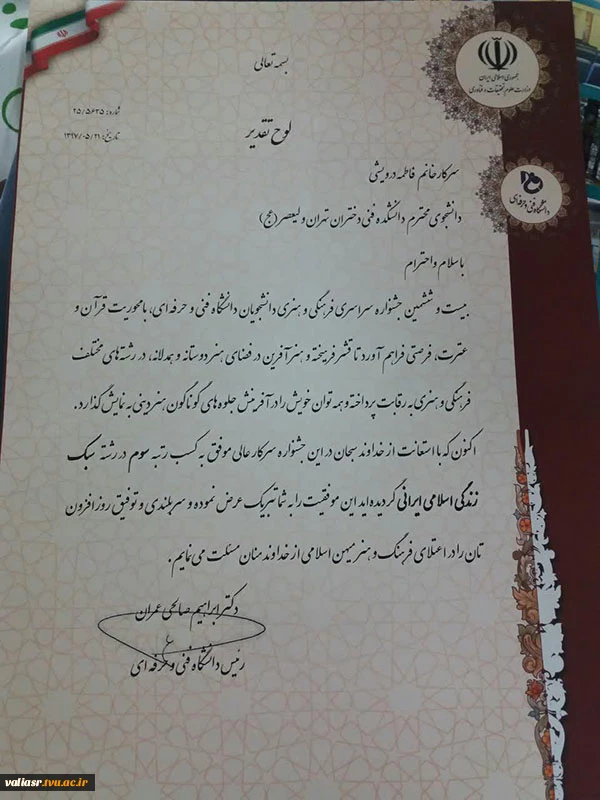 جمهوری اسلامی ایران
وزارت علوم تحقیقات و فناوری
دانشگاه فنی و حرفه‌ای
بسمه تعالی
شماره: ۲۵/۵۶۳۵
تاریخ: ۱۳۹۷/۰۵/۲۱
لوح تقدیر
سرکار خانم فاطمه درویشی
دانشجوی محترم دانشکده فنی دختران تهران ولیعصر (عج)
با سلام و احترام
بیست و ششمین جشنواره سراسری فرهنگی و هنری دانشجویان دانشگاه فنی و حرفه ای، با محوریت قرآن و
عترت، فرصتی فراهم آورد تا قشر فرهیخته و هنرآفرین در فضای هنر دوستانه و همدلانه، در رشته های مختلف
فرهنگی و هنری به رقابت پرداخته و همه توان خویش را در آفرینش جلوه های گوناگون هنر دینی به نمایش گذارد.
اکنون که با استعانت از خداوند سبحان در این جشنواره سرکار عالی موفق به کسب رتبه سوم در رشته سبک
زندگی اسلامی ایرانی گردیده اید این موفقیت را به شما تبریک عرض نموده و سربلندی و توفیق روز افزون
تان را در اعتلای فرهنگ و هنر میهن اسلامی از خداوند منان مسئلت می نمایم.
دکتر ابراهیم صالحی عمران
رئیس دانشگاه فنی و حرفه ای
valiasr.tvu.ac.ir